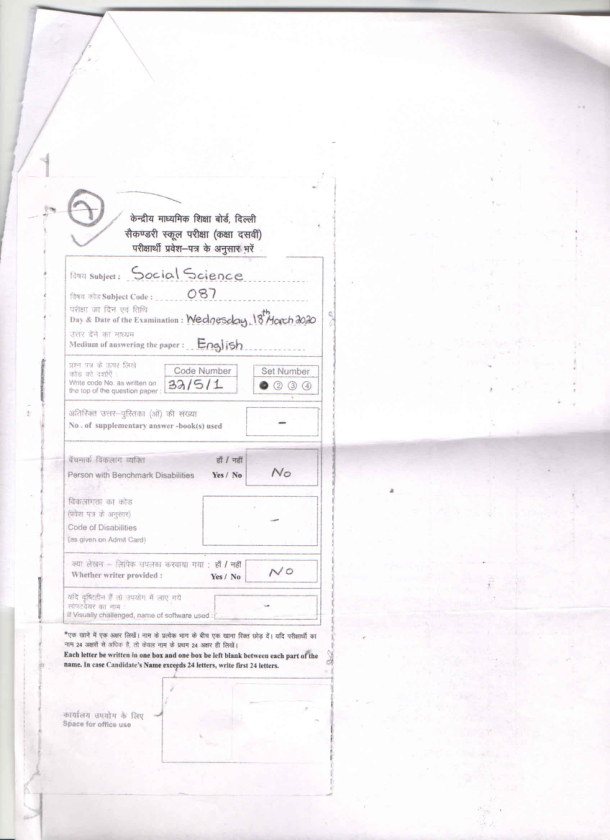 केन्द्रीय माध्यमिक शिक्षा बोर्ड, दिल्ली
सैकण्डरी स्कूल परीक्षा (कक्षा दसवीं)
परीक्षार्थी प्रवेश–पत्र के अनुसार भरें
विषय Subject : Social Science
विषय कोड Subject Code : 087
परीक्षा का दिन एवं तिथि
Day & Date of the Examination : Wednesday, 18th March 2020
उत्तर देने का माध्यम
Medium of answering the paper : English
प्रश्न पत्र के ऊपर लिखे
कोड को दर्शाएँ :
Write code No. as written on
the top of the question paper :
Code Number
32/5/1
Set Number
② ③ ④
अतिरिक्त उत्तर–पुस्तिका (ओं) की संख्या
No. of supplementary answer -book(s) used
–
बैंचमार्क विकलांग व्यक्ति हाँ / नहीं
Person with Benchmark Disabilities Yes / No
No
विकलांगता का कोड
(प्रवेश पत्र के अनुसार)
Code of Disabilities
(as given on Admit Card)
–
क्या लेखन – लिपिक उपलब्ध करवाया गया : हाँ / नहीं
Whether writer provided : Yes / No
NO
यदि दृष्टिहीन हैं तो उपयोग में लाए गये
सॉफ्टवेयर का नाम :
If Visually challenged, name of software used :
–
*एक खाने में एक अक्षर लिखें। नाम के प्रत्येक भाग के बीच एक खाना रिक्त छोड़ दें। यदि परीक्षार्थी का
नाम 24 अक्षरों से अधिक है, तो केवल नाम के प्रथम 24 अक्षर ही लिखें।
Each letter be written in one box and one box be left blank between each part of the
name. In case Candidate's Name exceeds 24 letters, write first 24 letters.
कार्यालय उपयोग के लिए
Space for office use